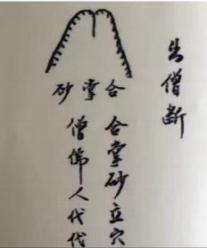 出僧断
合掌砂
合掌砂立穴
僧佛人代代